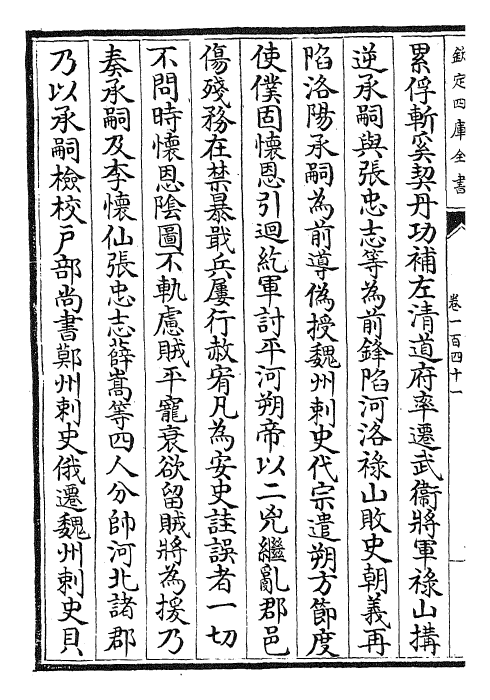 欽定四庫全書
卷一百四十一
累俘斬奚契丹功補左清道府率遷武衞將軍祿山搆
逆承嗣與張忠志等為前鋒陷河洛祿山敗史朝義再
陷洛陽承嗣為前導偽授魏州刺史代宗遣朔方節度
使僕固懷恩引迴紇軍討平河朔帝以二兇繼亂郡邑
傷殘務在禁暴戢兵屢行赦宥凡為安史詿誤者一切
不問時懷恩陰圖不軌慮賊平寵衰欲留賊將為援乃
奏承嗣及李懷仙張忠志薛嵩等四人分帥河北諸郡
乃以承嗣檢校戶部尚書鄭州刺史俄遷魏州刺史貝